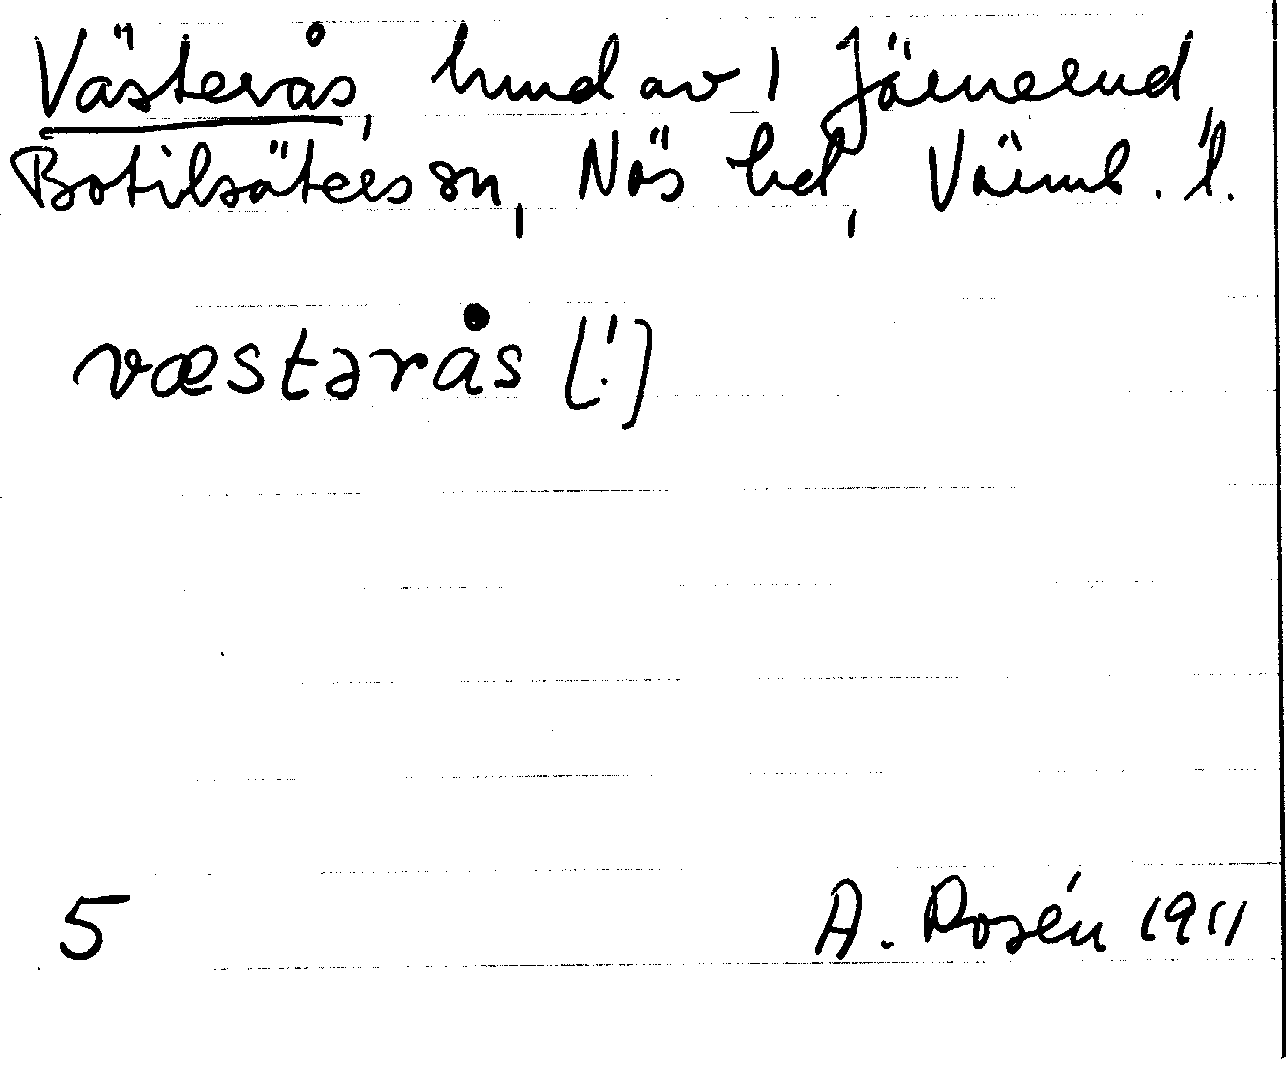 Västerås, hmd av 1 Järnerud,
Botilsäters sn, Näs hd, Värml. l.
væstərås [!]
5
A. Rosén 1911